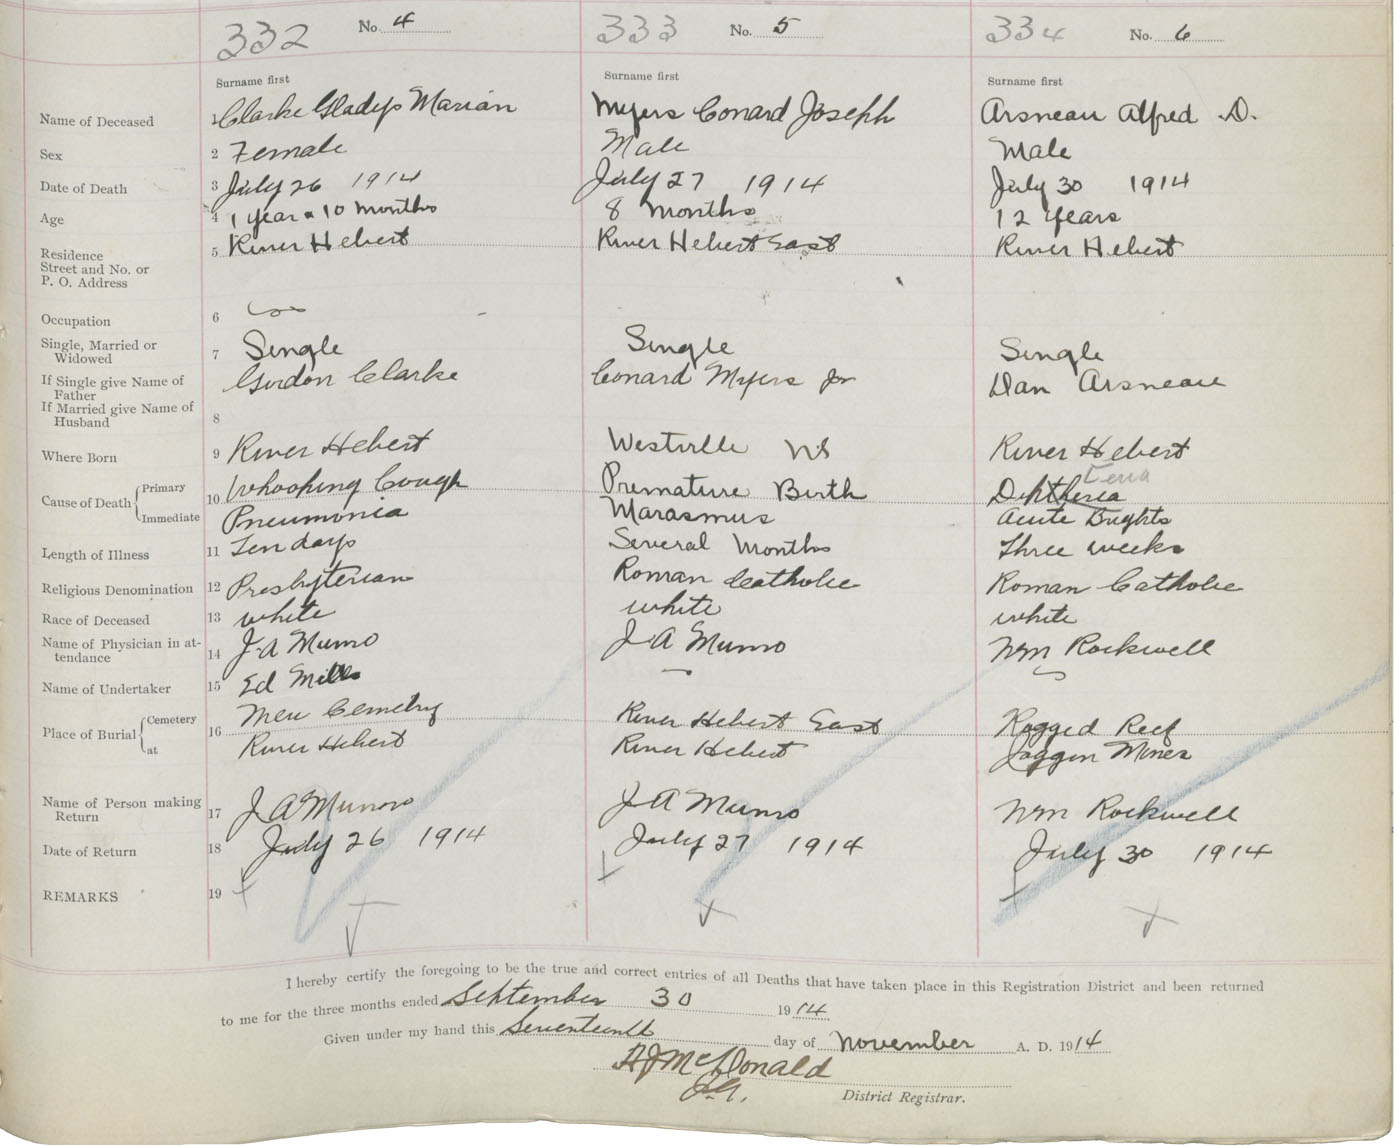 332 No. 4 333 No. 5 334 No. 6
Surname first Surname first Surname first
Name of Deceased 1 Clarke Gladys Marian Myers Conard Joseph Arsneau Alfred D.
Sex 2 Female Male Male
Date of Death 3 July 26 1914 July 27 1914 July 30 1914
Age 4 1 year 10 Months 8 Months 12 Years
Residence 5 River Hebert River Hebert East River Hebert
Street and No. or
P. O. Address
Occupation 6
Single, Married or
Widowed 7 Single Single Single
If Single give Name of
Father Gordon Clarke Conard Myers Jr Dan Arsneau
If Married give Name of
Husband 8
Where Born 9 River Hebert Westville NS River Hebert
Cause of Death { Primary 10 Whooping Cough Premature Birth Diptheria teria
Immediate Pneumonia Marasmus Acute Brights
Length of Illness 11 Ten days Several Months Three weeks
Religious Denomination 12 Presbyterian Roman Catholic Roman Catholic
Race of Deceased 13 white white white
Name of Physician in at-
tendance 14 J. A Munro J. A Munro Wm Rockwell
Name of Undertaker 15 Ed Mills
Place of Burial { Cemetery 16 New Cemetry River Hebert East Ragged Reef
at River Hebert River Hebert Joggin Mines
Name of Person making
Return 17 J A Munro J A Munro Wm Rockwell
Date of Return 18 July 26 1914 July 27 1914 July 30 1914
REMARKS 19
I hereby certify the foregoing to be the true and correct entries of all Deaths that have taken place in this Registration District and been returned
to me for the three months ended September 30 1914
Given under my hand this Seventeenth day of November A. D. 1914
McDonald
District Registrar.